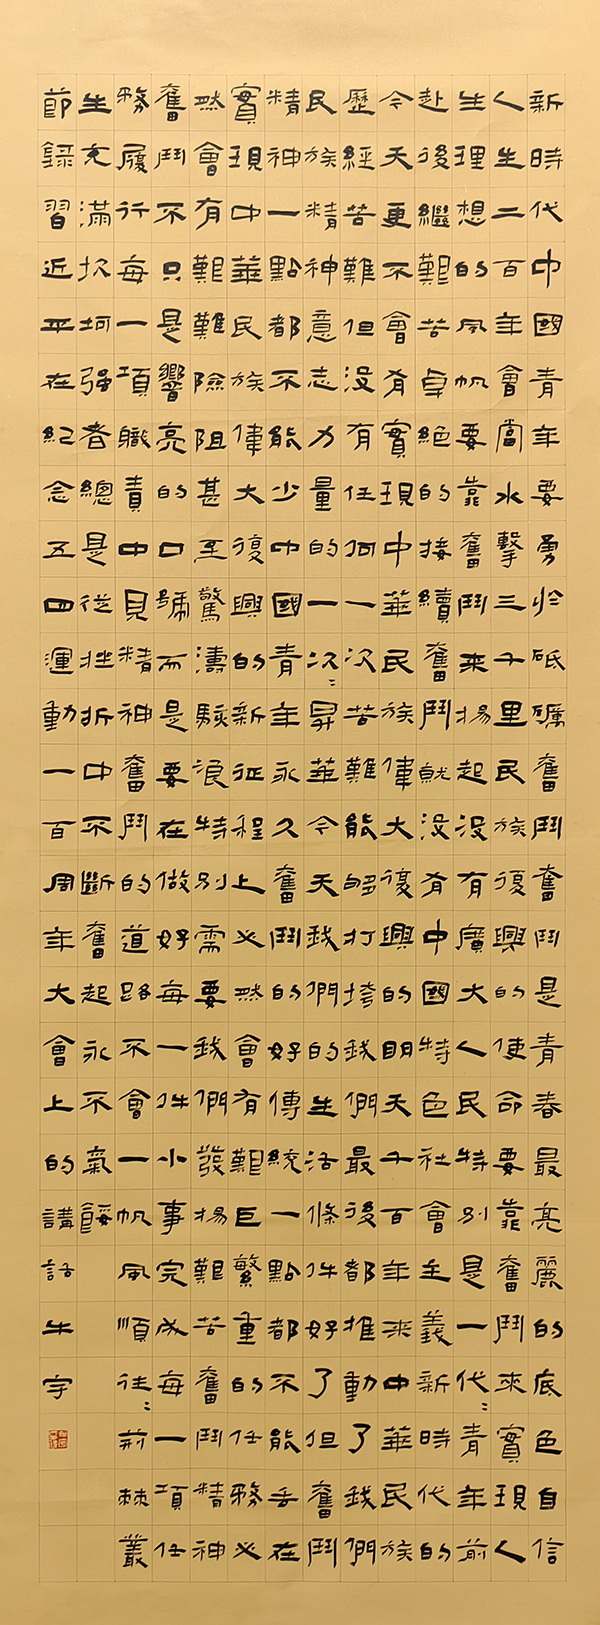 新時代中國青年要勇於砥礪奮鬥奮鬥是青春最亮麗的底色自信
人生二百年會當水擊三千里民族復興的使命要靠奮鬥來實現人
生理想的風帆要靠奮鬥來揚起沒有廣大人民特別是一代〻青年前
赴後繼艱苦卓絕的接續奮鬥就沒有中國特色社會主義新時代的
今天更不會有實現中華民族偉大復興的明天千百年來中華民族
歷經苦難但沒有任何一次苦難能夠打垮我們最後都推動了我們
民族精神意志力量的一次〻昇華今天我們的生活條件好了但奮鬥
精神一點都不能少中國青年永久奮鬥的好傳統一點都不能丟在
實現中華民族偉大復興的新征程上必然會有艱巨繁重的任務必
然會有艱難險阻甚至驚濤駭浪特別需要我們發揚艱苦奮鬥精神
奮鬥不只是響亮的口號而是要在做好每一件小事完成每一項任
務履行每一項職責中見精神奮鬥的道路不會一帆風順往〻荊棘叢
生充滿坎坷強者總是從挫折中不斷奮起永不氣餒
節錄習近平在紀念五四運動一百周年大會上的講話牛宇